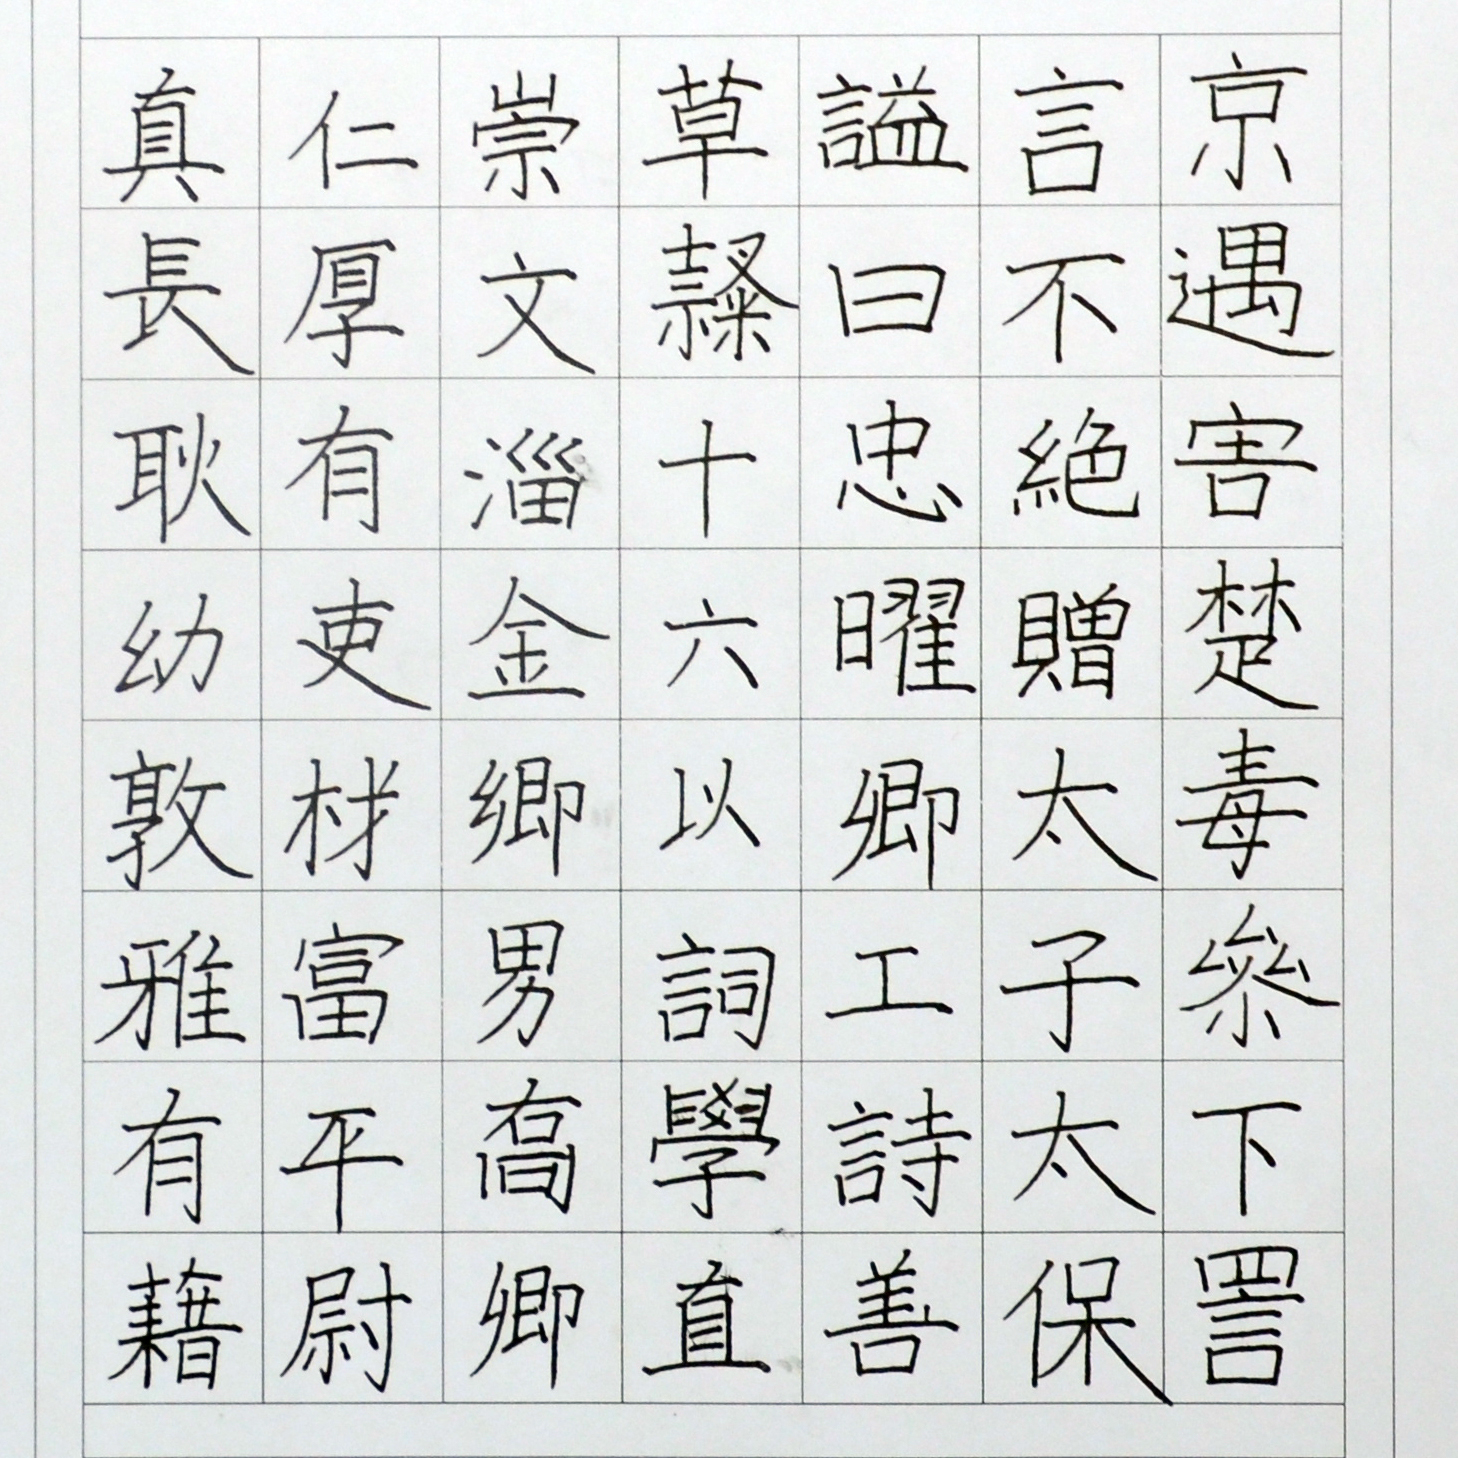 京遇害楚毒參下詈
言不絕贈太子太保
謚曰忠曜卿工詩善
草隸十六以詞學直
崇文淄金卿男喬卿
仁厚有吏材富平尉
真長耿幼敦雅有藉